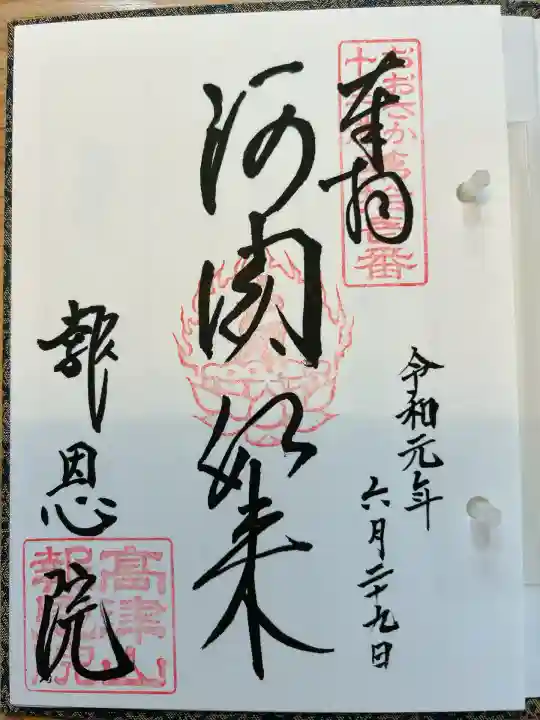 奉拝
おおさか
阿閦如来
令和元年
六月二十九日
報恩院
高津山
報恩院